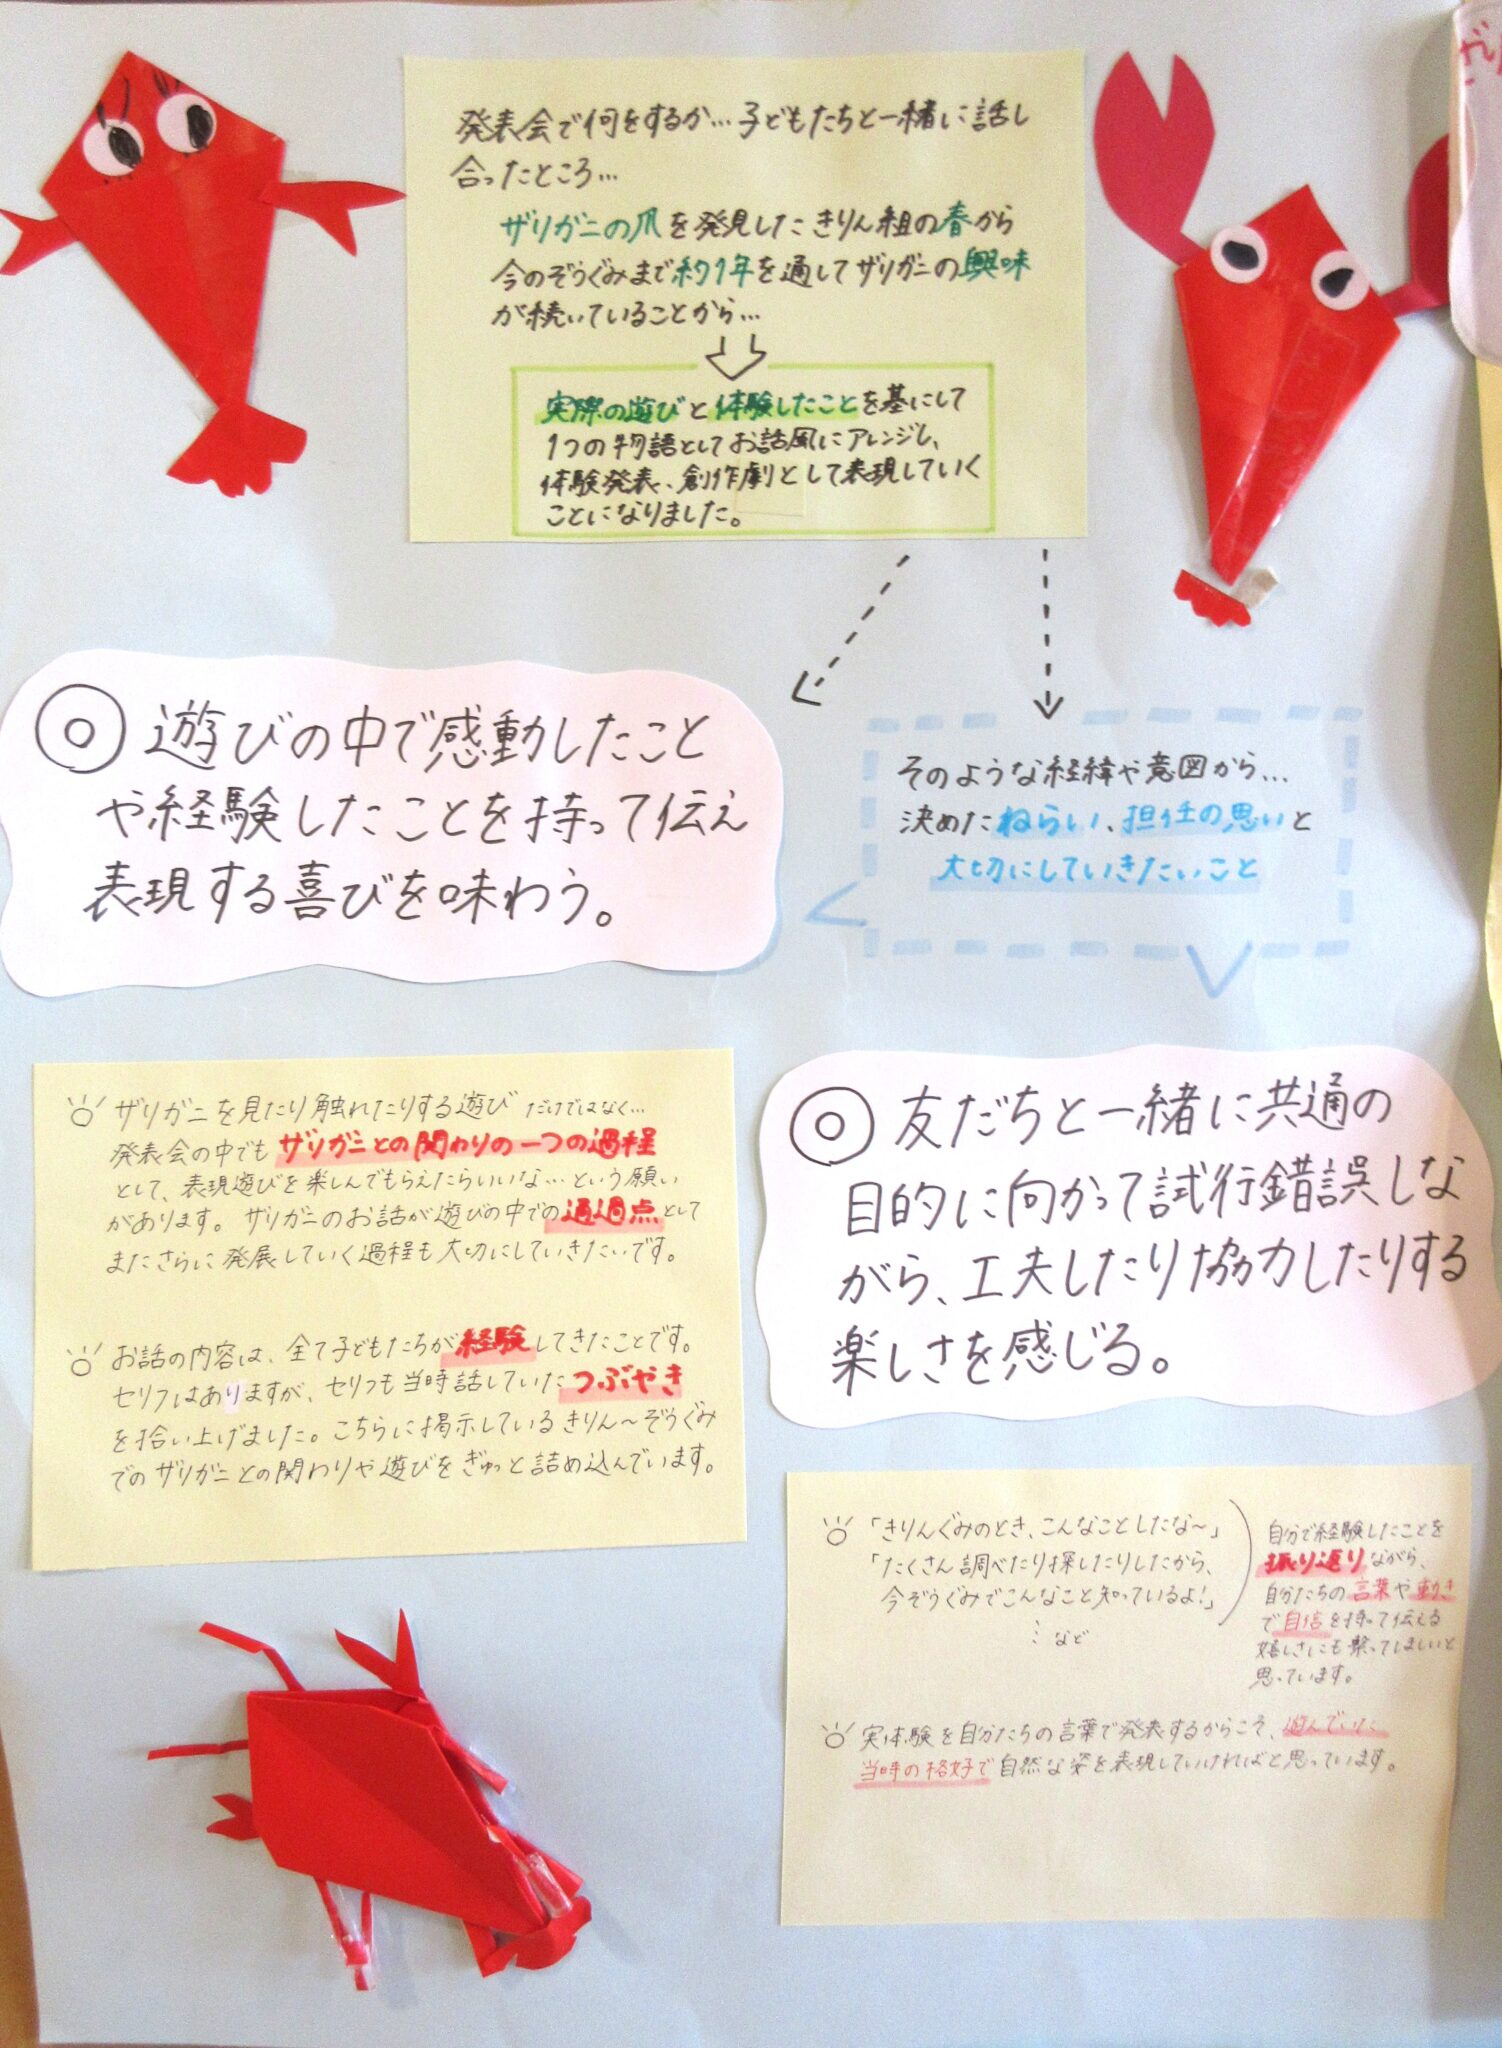 発表会で何をするか…子どもたちと一緒に話し
合ったところ…
ザリガニの爪を発見したきりん組の春から
今のぞうぐみまで約1年を通してザリガニの興味
が続いていることから…
実際の遊びと体験したことを基にして
1つの物語としてお話風にアレンジし、
体験発表、創作劇として表現していく
ことになりました。
◎遊びの中で感動したこと
や経験したことを持って伝え
表現する喜びを味わう。
そのような経緯や意図から…
決めたねらい、担任の思いと
大切にしていきたいこと
ザリガニを見たり触れたりする遊びだけではなく…
発表会の中でもザリガニとの関わりの一つの過程
として、表現遊びを楽しんでもらえたらいいな…という願い
があります。ザリガニのお話が遊びの中での通過点として
またさらに発展していく過程も大切にしていきたいです。
お話の内容は、全て子どもたちが経験してきたことです。
セリフはありますが、セリフも当時話していたつぶやき
を拾い上げました。こちらに掲示しているきりん～ぞうぐみ
でのザリガニとの関わりや遊びをぎゅっと詰め込んでいます。
◎友だちと一緒に共通の
目的に向かって試行錯誤しな
がら、工夫したり協力したりする
楽しさを感じる。
「きりんぐみのとき、こんなことしたな～」
「たくさん調べたり探したりしたから、
今ぞうぐみでこんなこと知っているよ！」
…など
自分で経験したことを
振り返りながら、
自分たちの言葉や動き
で自信を持って伝える
嬉しさにも繋ってほしいと
思っています。
実体験を自分たちの言葉で発表するからこそ、遊んでいた
当時の格好で自然な姿を表現していければと思っています。